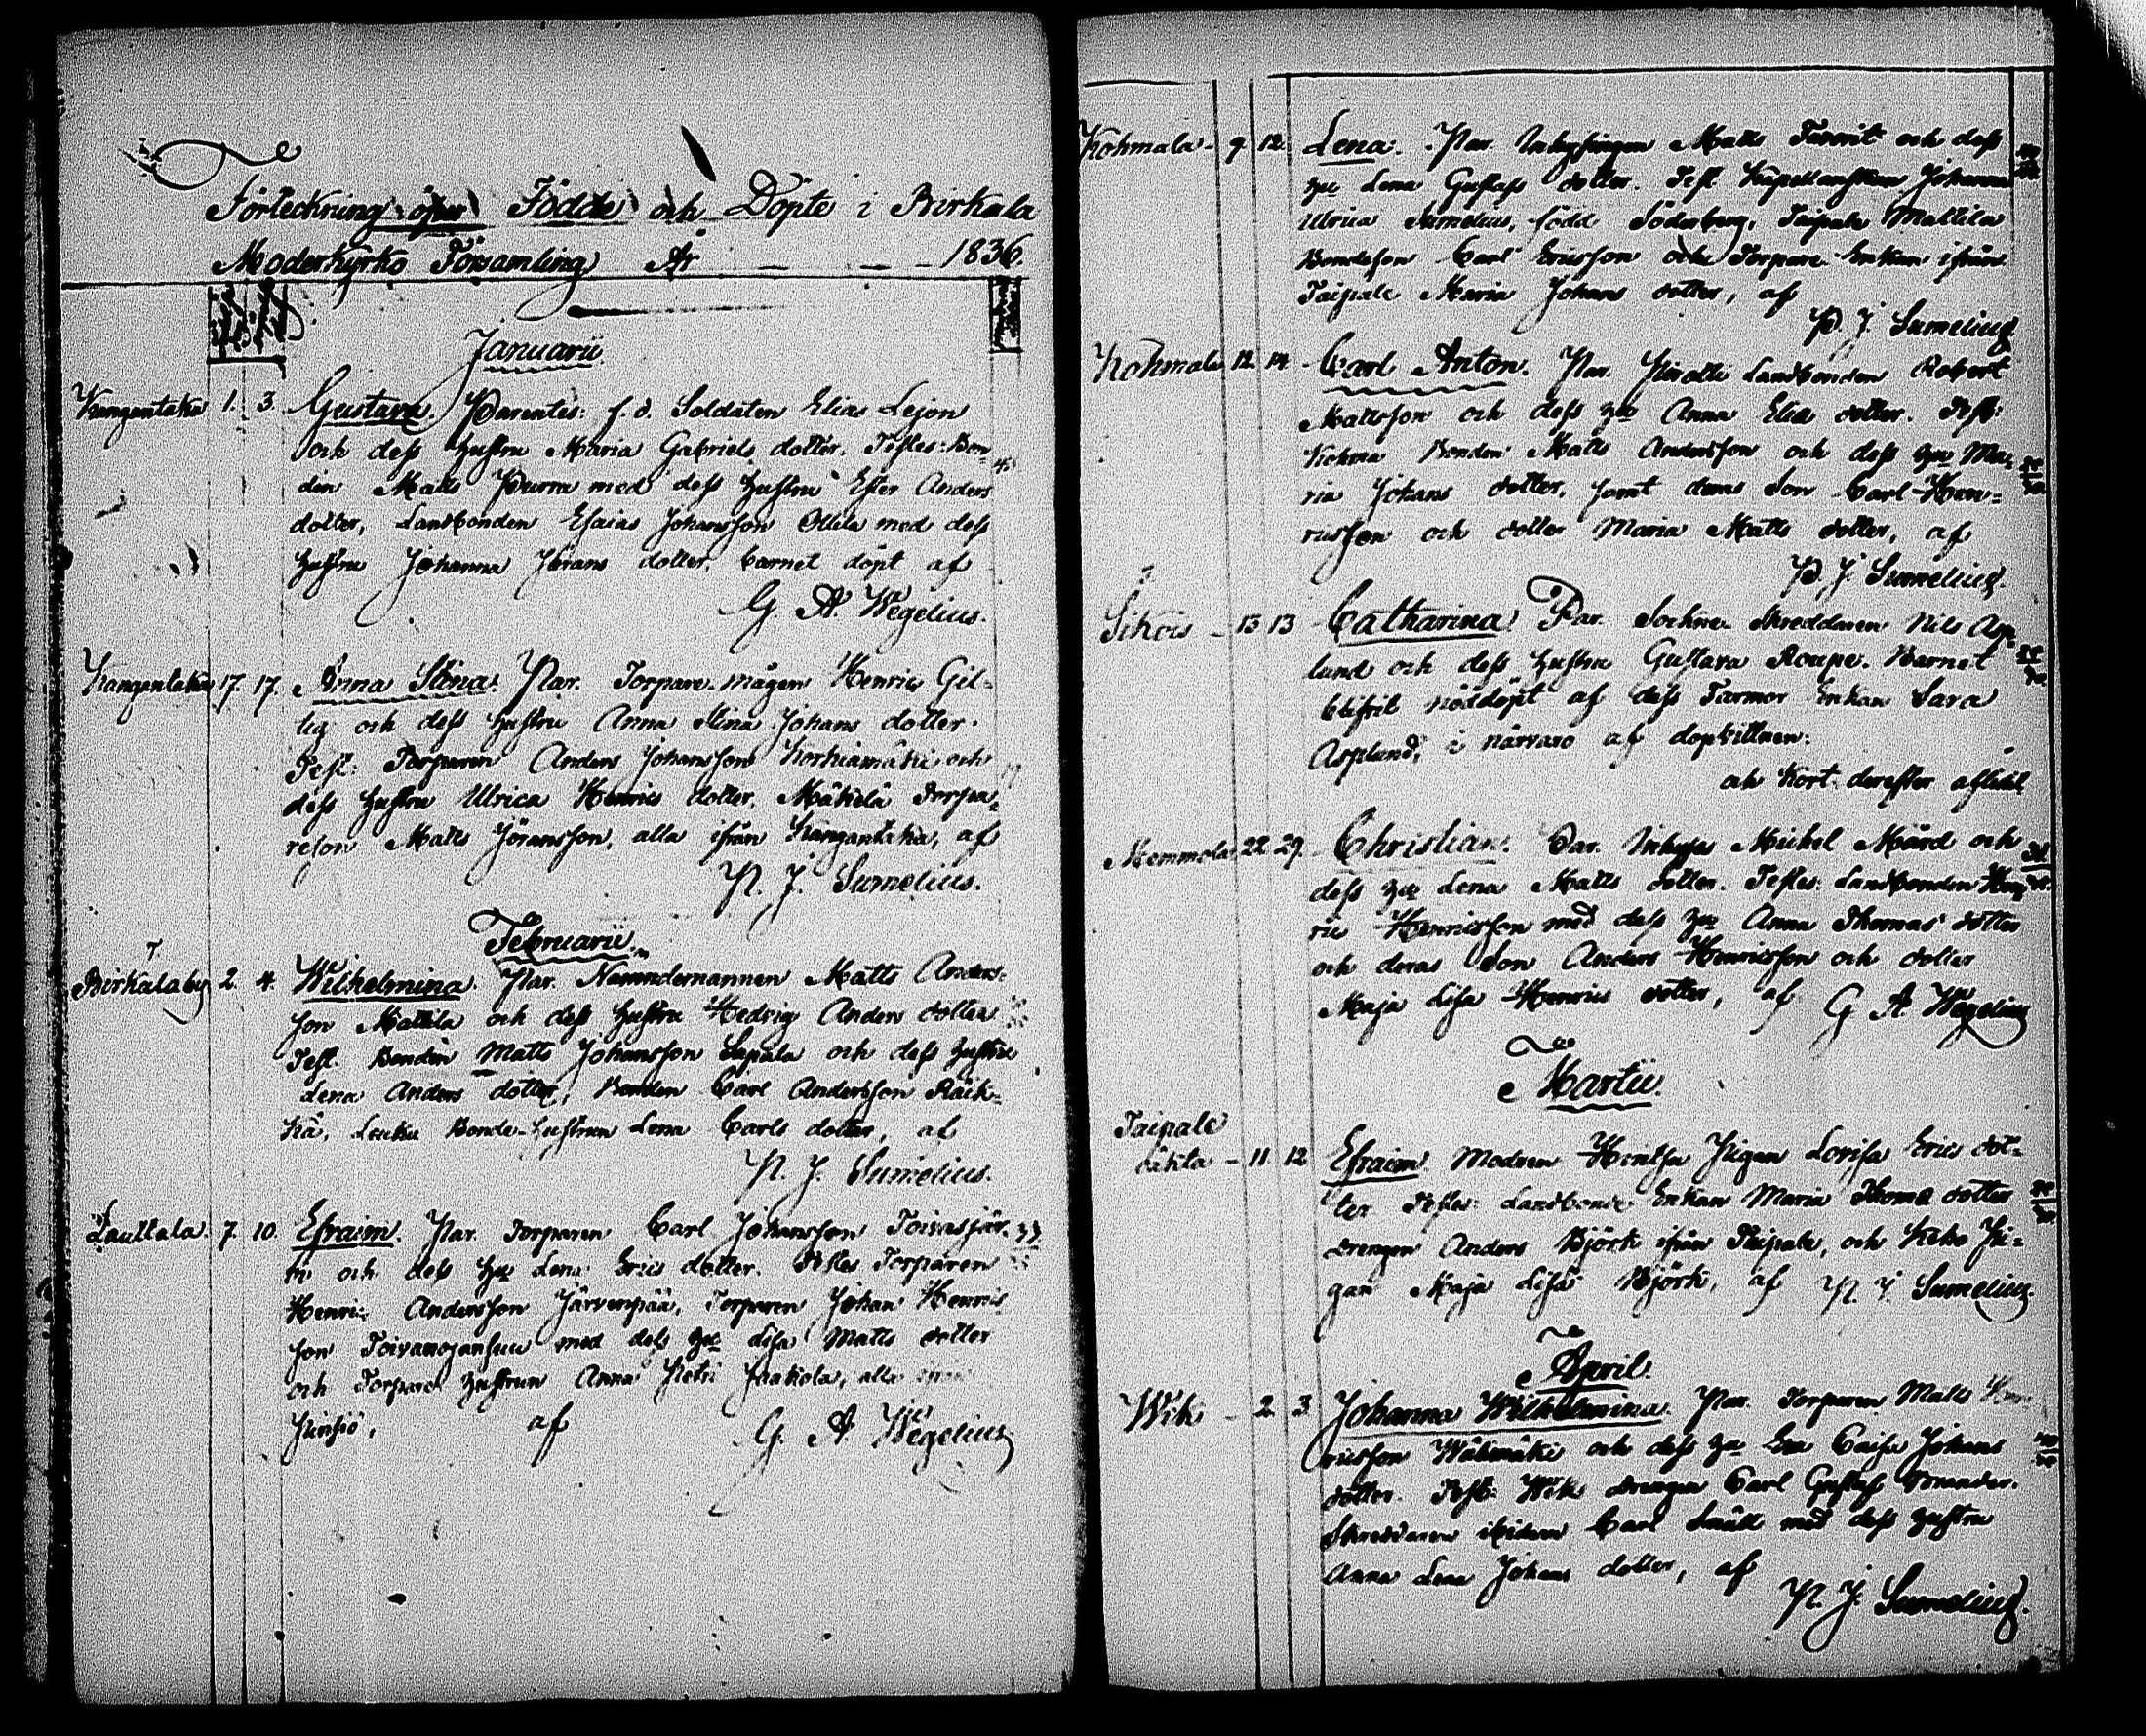 Förteckning öfver Födde och Döpte i Birkala
Moderkyrko Församling År 1836.
Januarii
Kangantaka 1. 3. Gustava. Parentes: f. d. Soldaten Elias Lejon
och dess hustru Maria Gabriels dotter. Testes: Bon-
den Matts Purra med dess hustru Ester Anders
dotter, Landbonden Esaias Johansson Ollila med dess
hustru Johanna Jörans dotter, barnet döpt af
G. A. Wegelius.
Kangantaka 17. 17. Anna Stina. Par. Torpare-mågen Henric Gil-
lig och dess hustru Anna Stina Johans dotter.
Test: Torparen Anders Johansson Korkiamäki och
dess hustru Ulrica Henrics dotter, Mäkelä Torpa-
reson Matts Jöransson, alla ifrån Kangantaka, af
P. J. Sumelius.
Februarii
Birkalaby 2. 4. Wilhelmina. Par. Nämndemannen Matts Anders-
son Mattila och dess hustru Hedvig Anders dotter
Test. Bonden Matts Johansson Sapala och dess hustru
Lena Anders dotter, Bonden Carl Andersson Räik-
kä, Leuku Bonde-hustrun Lena Carls dotter, af
P. J. Sumelius.
Lauttala. 7. 10. Efraim. Par. Torparen Carl Johansson Toivasjär-
vi och dess hu Lena Erics dotter. Testes Torparen
Henric Andersson Järvenpää, Torparen Johan Henrics
son Toivanojansuu med dess hu Lisa Matts dotter
och Torpare hustrun Anna Petri Jaakola, alla
Pinsiö, af G. A Wegelius
Kohmala 9. 12. Lena. Par. Matts Favorit och dess
hu Lena Gustafs dotter. Test. Kapellanskan Johanna
Ulrica Sumelius, född Söderberg, Taipale Mattila
Bondeson Carl Ericsson och Torpare Enkan ifrån
Taipale Maria Johans dotter, af
P. J. Sumelius
Kohmala 12. 14. Carl Anton. Par. Landbonden Robert
Mattsson och dess hu Anna Elia dotter. Test:
Kohma Bonden Matts Andersson och dess hu Ma-
ria Johans dotter, samt deras Son Carl Hen-
ricsson och dotter Maria Matts dotter, af
P. J. Sumelius.
Sikois 13 13 Catharina. Par. Sockne Skreddaren Nils Asp-
lund och dess hustru Gustava Roupe. Barnet
blifvit nöddöpt af dess Farmor Enkan Sara
Asplund, i närvaro af dopvittnen.
och kort derefter aflidit
Memmola 22. 29. Christian. Par. Inhyses Michel Mård och
dess hu Lena Matts dotter. Testes: Landbonden Hen-
ric Henricsson med dess hu Anna Thomas dotter
och deras Son Anders Henricsson och dotter
Maja Lisa Henrics dotter, af G A Wegelius
Martii.
Taipale
11. 12 Efraim. Modren Hintsa Pigan Lovisa Erics dot-
ter Testes: Landbonde Enkan Maria Thomas dotter
Drengen Anders Björk ifrån Taipale, och Keho Pi-
gan Maja Lisa Björk, af P. J. Sumelius.
April.
Wik 2. 3. Johanna Wilhelmina. Par. Torparen Matts Hen-
ricsson Wälimäki och dess hu Eva Caisa Johans
dotter. Test: Wik Drengen Carl Gustaf
Skreddaren Carl med dess hustru
Anna Lena Johans dotter, af
P. J. Sumelius.